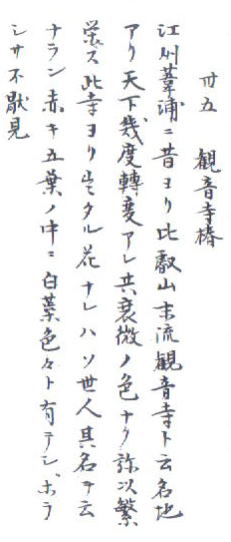 卅五　観音寺椿
江州葦浦ニ昔ヨリ比叡山末流観音寺ト云名地
アリ天下幾度轉変アレ共衰微ノ色ナク弥以繁
栄ス此寺ヨリ出タル花ナレハソ世人其名ヲ云
ナラン赤キ五葉ノ中ニ白葉色々ト有テシボラ
シサ不厭見